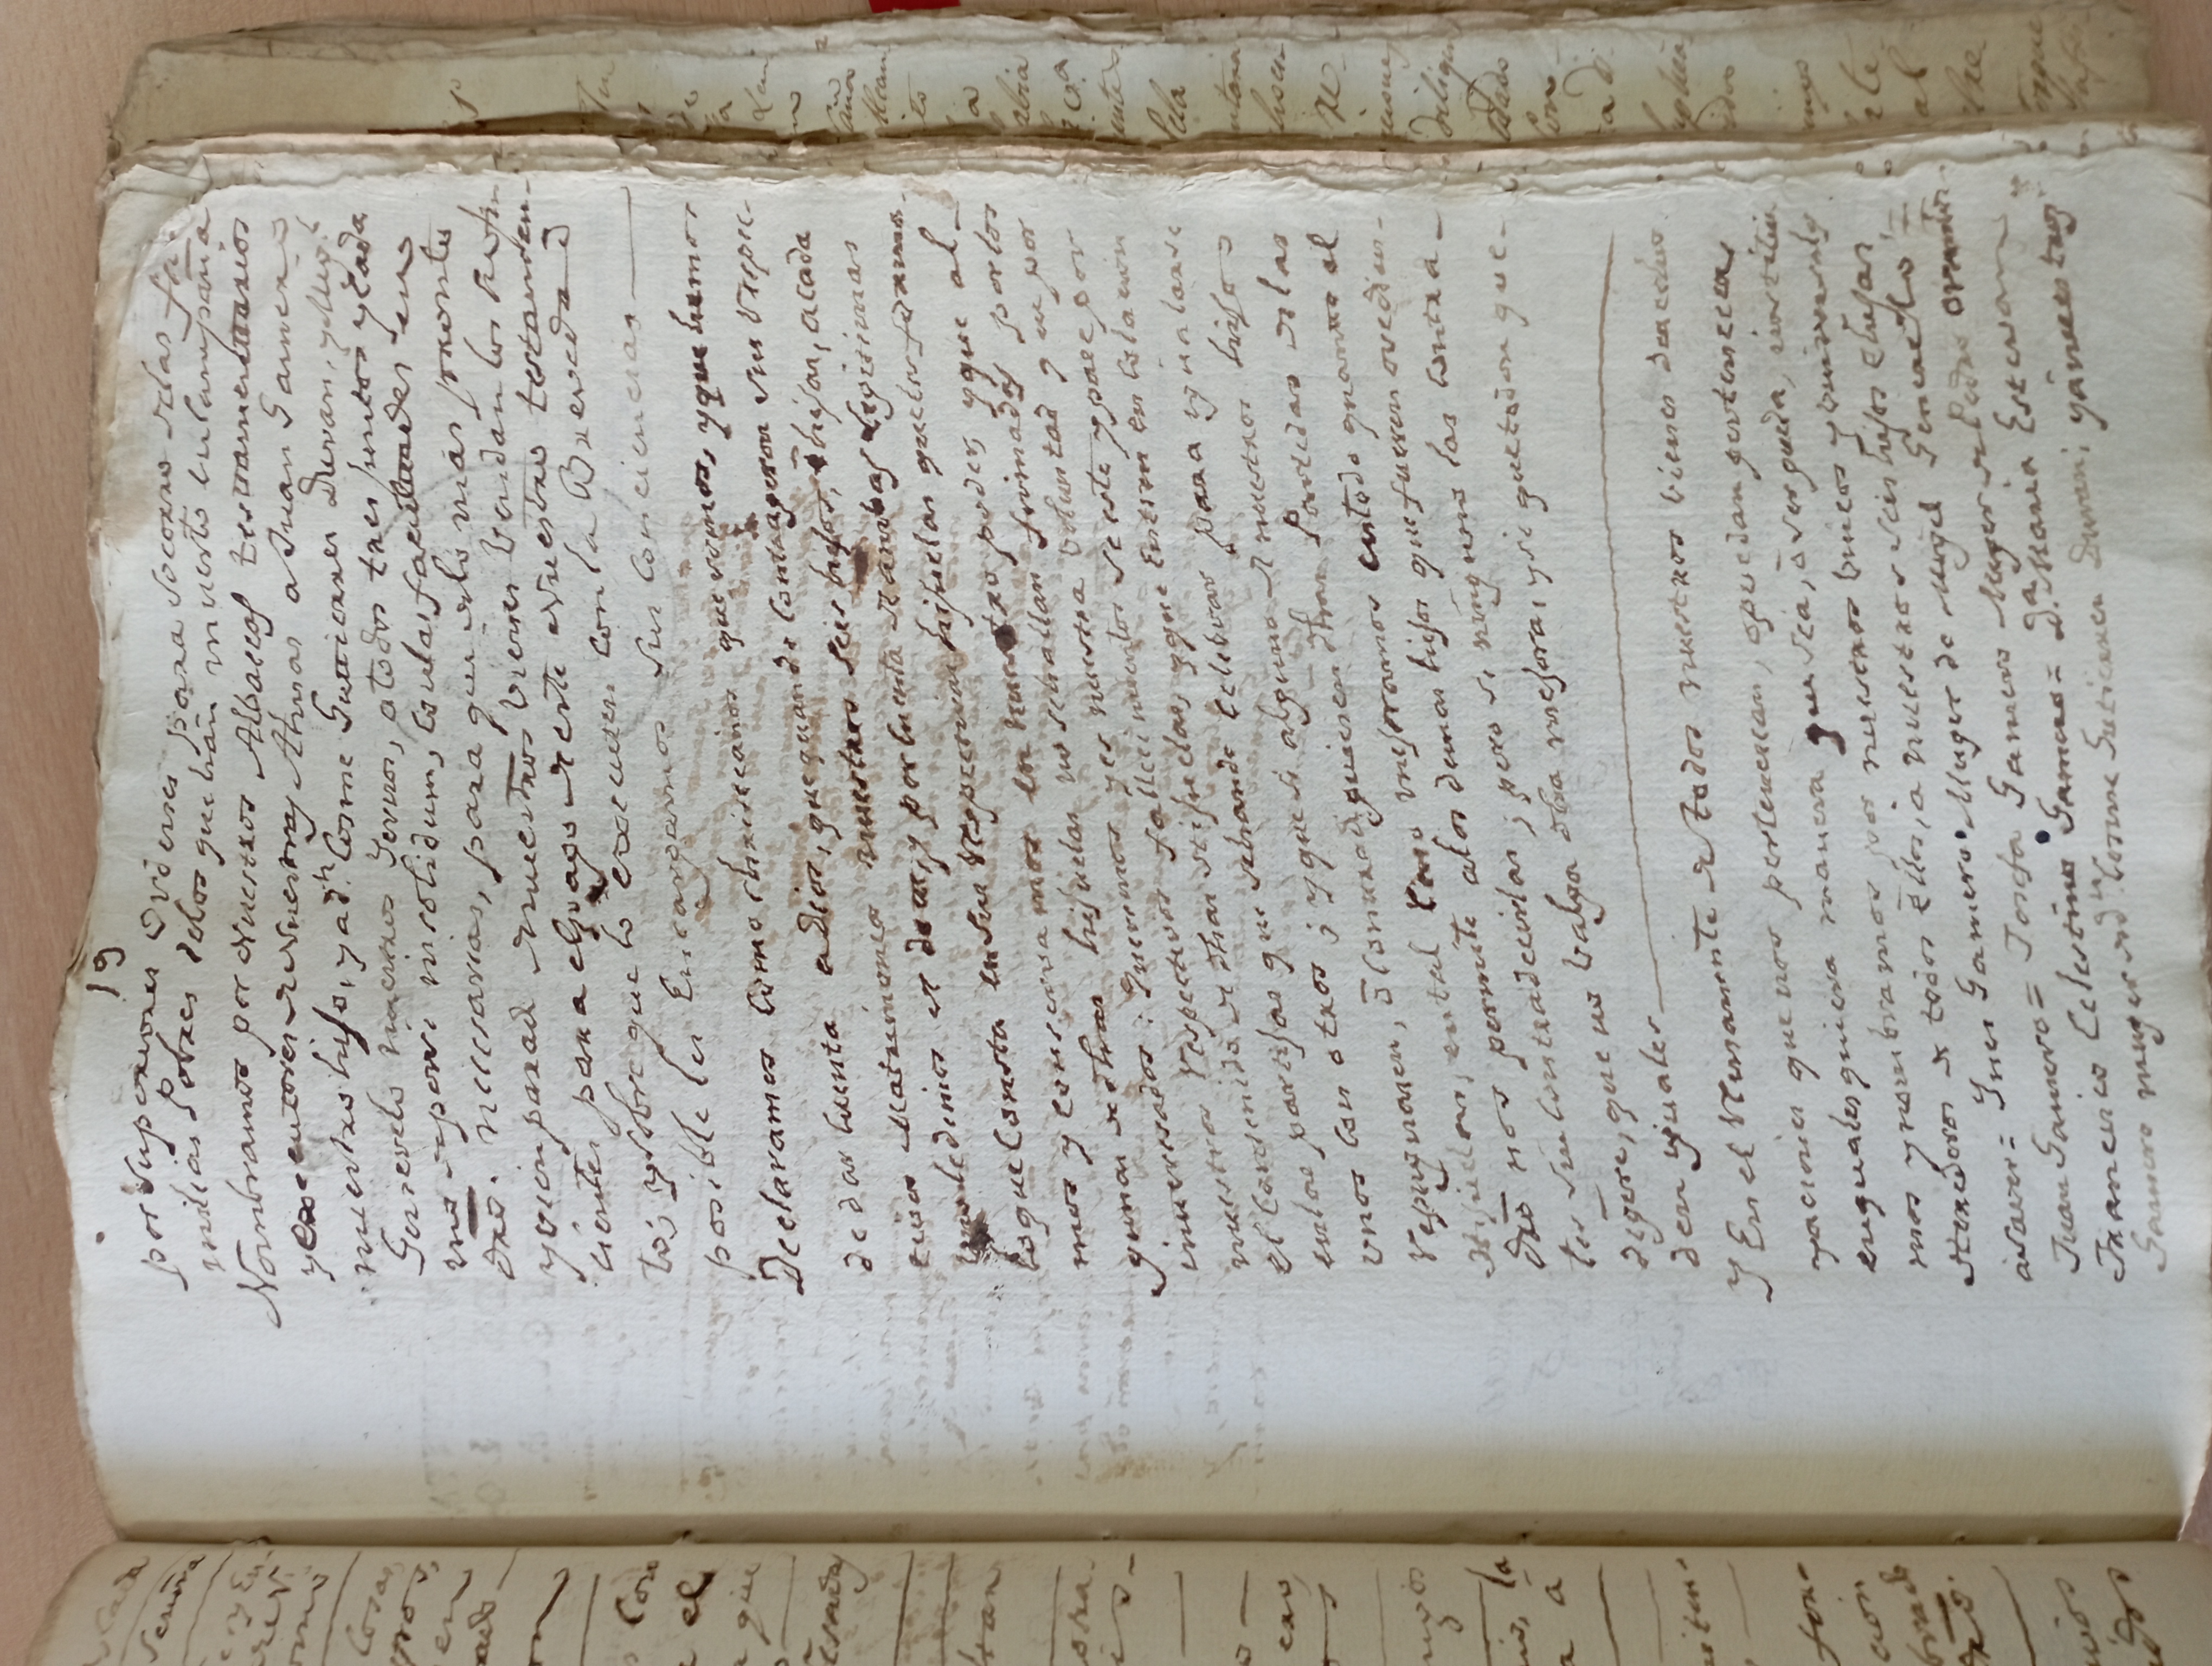 19
por Superiores Ordenes para Socorro de las fa-
milias Pobres delos que hán muerto en Campaña
Nombramos por Nuestros Albaceas testamentarios
y executores de Nuestras Almas a Juan Gamero
nuestro hijo, y a dn. Cosme Guttierrez Duran, y Migl.
Genevelo nuestros Yernos, a todos tres juntos y Cada
uno de por si insolidum, con las facultades en
dro. necesarias, para que de lo mas pronto
y vien parad de nuestros vienes vendan los sufi-
cientes para el pago de este Nuestro testamen-
to; y sobre que lo executen con la Brevedad
posible les Encargamos sus Conciencias
Declaramos como christianos que somos, y que hemos
de dar Cuenta a Dios, que quando Contrageron sus respec-
tivos Matrimonios nuestros seis hijos, é hijas, a cada
uno le dimos de dote, y por Cuenta de ambas legitimas
lo que Consta en sus respectivas hijuelas que les forma-
mos y conservamos en nuestro poder, y que al-
gunas de dhas hijuelas no se hallan firmadas por los
interesados: Queremos y es nuestra Voluntad que por
nuestros respectivos fallecimientos se esté y pase por
el Contenido de dhas Hijuelas, y que Entren en Colacion
en las partijas que se han de Celebrar para igualarse
unos con otros; y que si alguno de nuestros hijos
repugnasen, ó Contradiguiesen dhas Partidas de las
Hijuelas, en tal Caso mejoramos en todo quanto el
dro nos permite a los demas hijos que fueren ovedien-
tes sin Contradecirlas; pero si ninguno las Contra-
digere, que no Valga dha mejora, y si que todos que-
den yguales
Y En el Remanente de todos nuestros vienes derechos
y aciones que nos pertenezcan, o puedan pertenecer
en qualesquiera manera que sea, ó ser pueda, institui
mos y nombramos por nuestros unicos y universales
Herederos de todos Ellos, a nuestros seis hijos e hijas
a saver = Ynes Gamero Muger de Migel Genevelo =
Juan Gamero = Josefa Gamero Muger de Pedro Orantos
Francisco Celestino Gamero = Da. Maria Estevan
Gamero muger de dn. Cosme Gutierrez Duran; y a nuestros